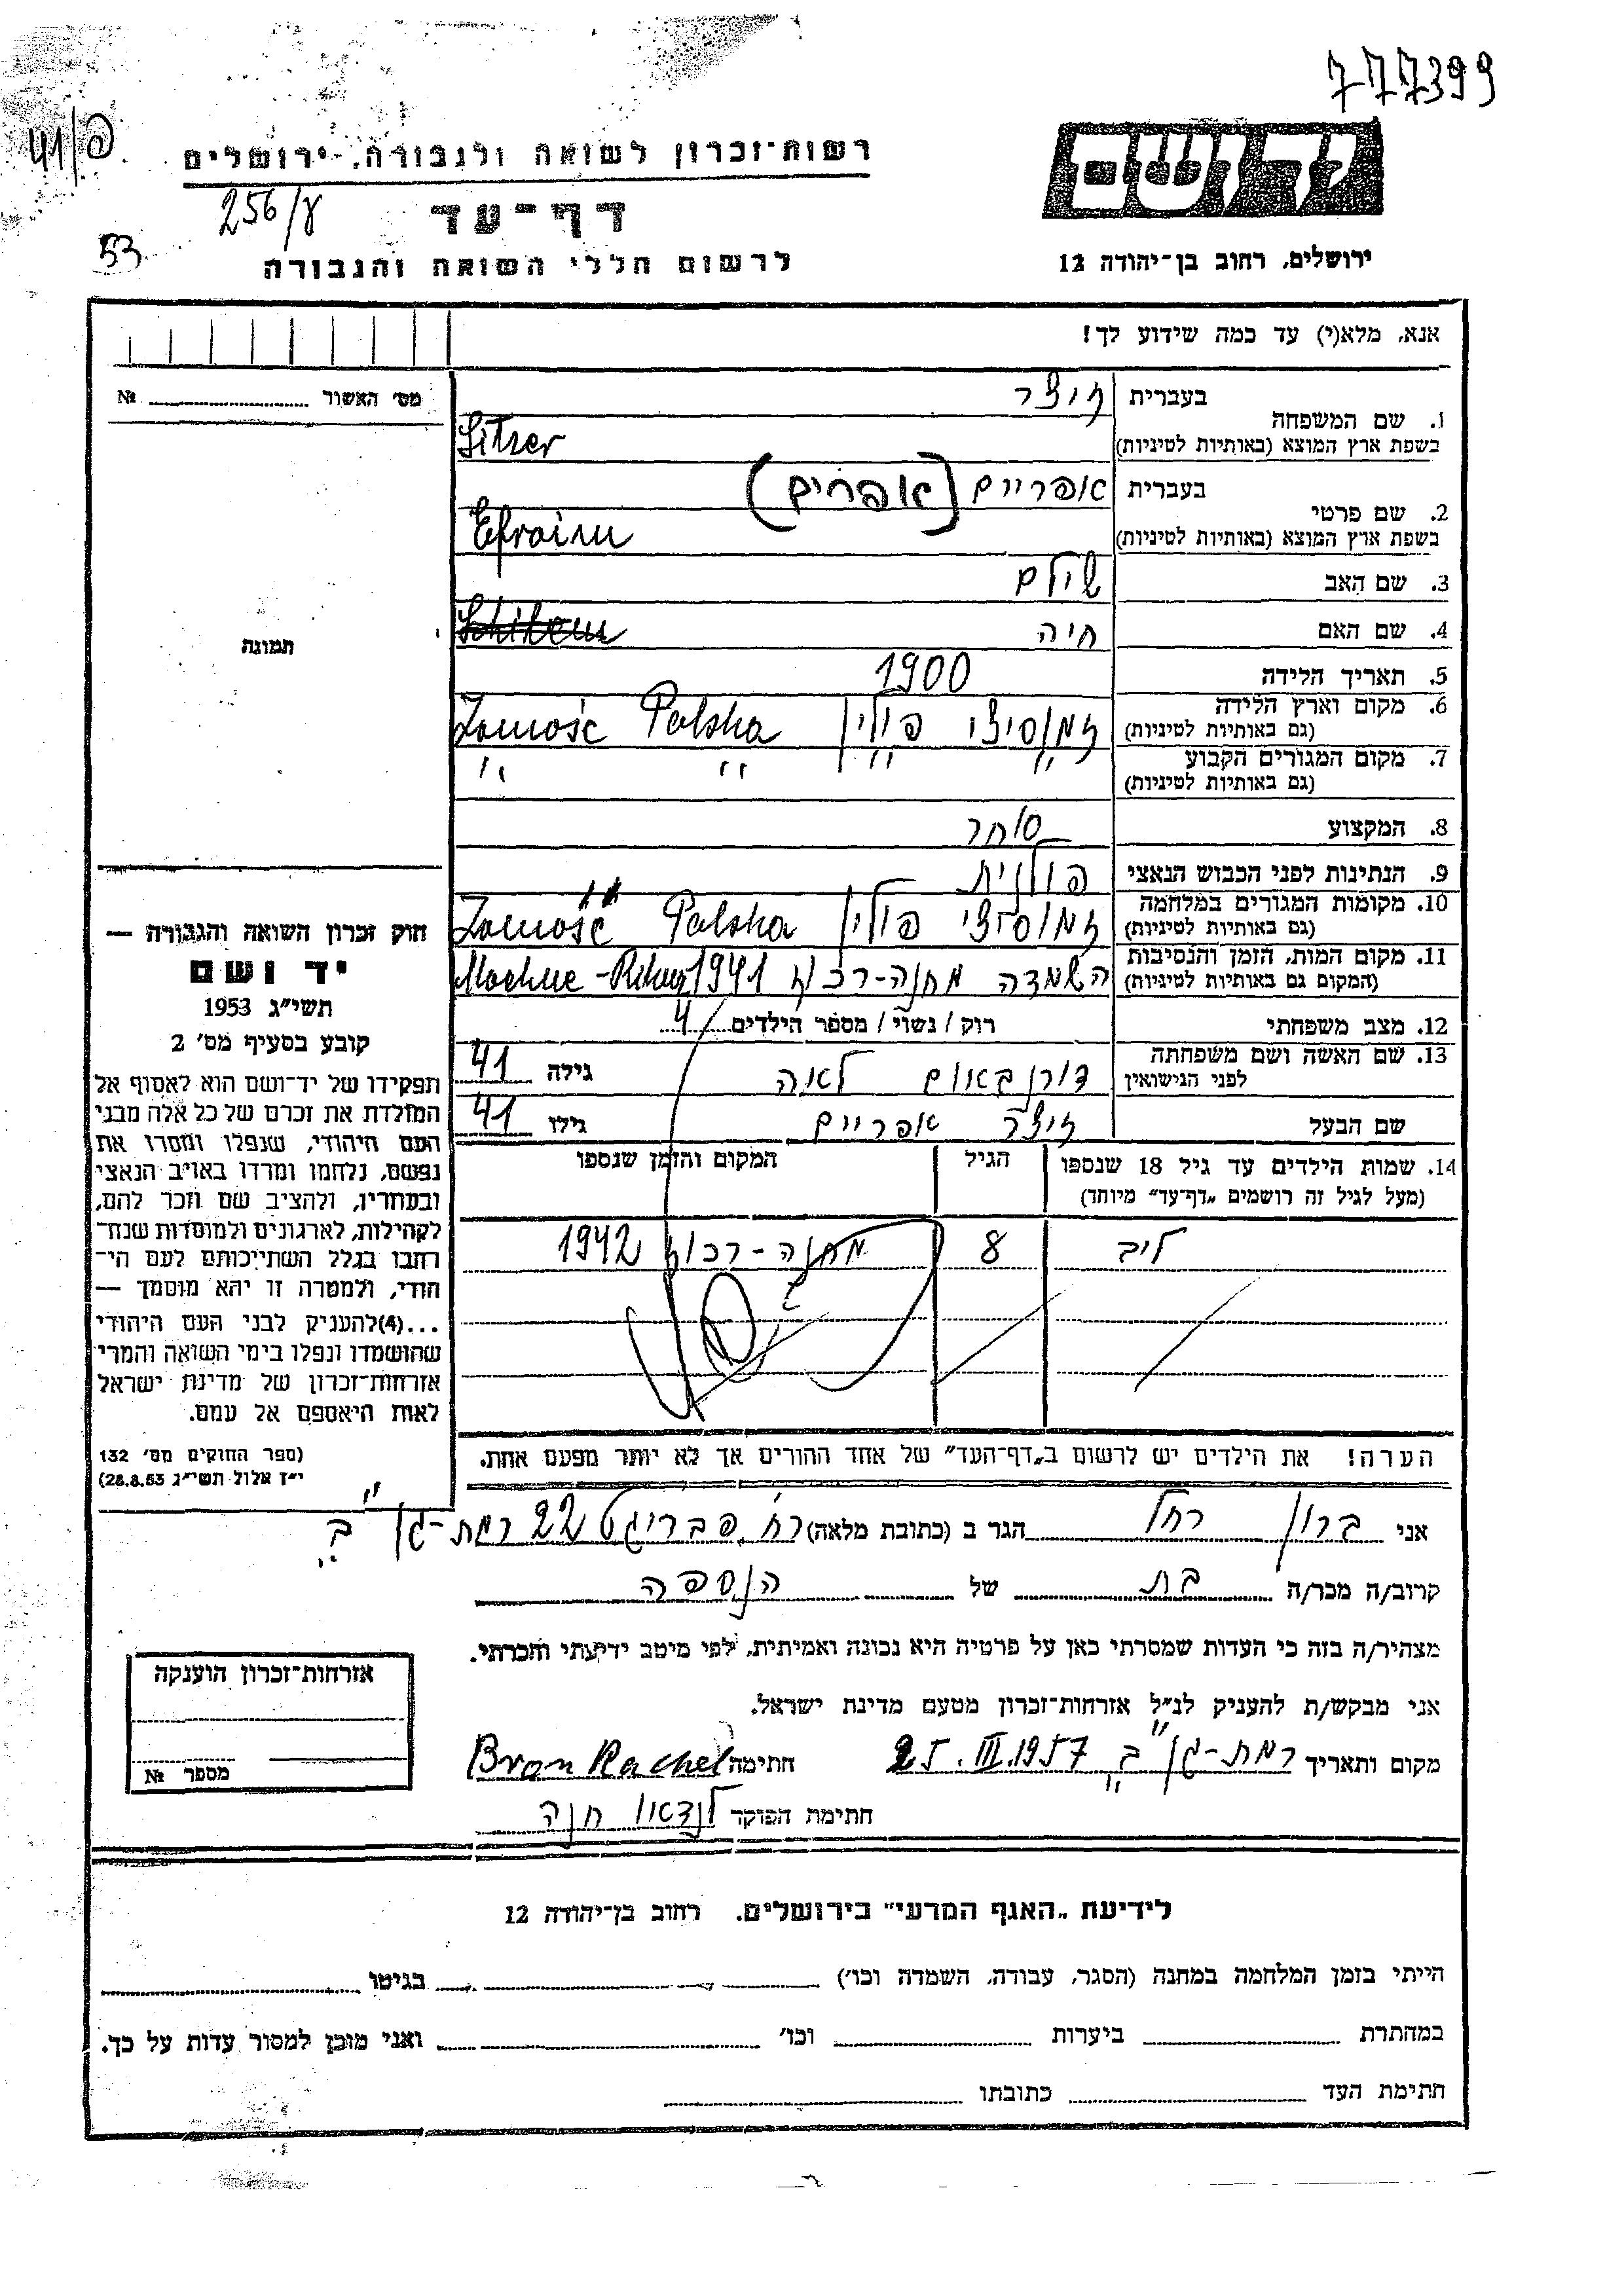 777399
41/פ
רשות־זכרון לשואה ולגבורה, ירושלים
יד ושם
256/ע
דף־עד
53
לרשום חללי השואה והגבורה
ירושלים, רחוב בן־יהודה 12
אנא, מלא(י) עד כמה שידוע לך!
מס׳ האשור № 
1. שם המשפחה
בעברית זיצר
בשפת ארץ המוצא (באותיות לטיניות) Sitzer
2. שם פרטי
בעברית אפריים (אפרים)
בשפת ארץ המוצא (באותיות לטיניות) Efraim
3. שם האב שולם
4. שם האם חיה
תמונה
5. תאריך הלידה 1900
6. מקום וארץ הלידה (גם באותיות לטיניות) זמוסיצי פולין Zamość Polska
7. מקום המגורים הקבוע (גם באותיות לטיניות) " " " "
8. המקצוע סוחר
9. הנתינות לפני הכבוש הנאצי פולנית
10. מקומות המגורים במלחמה (גם באותיות לטיניות) זמוסיצי פולין Zamość Polska
11. מקום המות, הזמן והנסיבות (המקום גם באותיות לטיניות) השמדה מחנה-רכוז 1941
12. מצב משפחתי רוק / נשוי / מספר הילדים 4
13. שם האשה ושם משפחתה לפני הנישואין דורנבאום לאה גילה 41
שם הבעל זיצר אפריים גילו 41
14. שמות הילדים עד גיל 18 שנספו (מעל לגיל זה רושמים „דף־עד” מיוחד)
הגיל
המקום והזמן שנספו
ליב 8 מחנה-רכוז 1942
הערה! את הילדים יש לרשום ב„דף־העד” של אחד ההורים אך לא יותר מפעם אחת.
חוק זכרון השואה והגבורה —
יד ושם
תשי״ג 1953
קובע בסעיף מס׳ 2
תפקידו של יד־ושם הוא לאסוף אל
המולדת את זכרם של כל אלה מבני
העם היהודי, שנפלו ומסרו את
נפשם, נלחמו ומרדו באויב הנאצי
ובעוזריו, ולהציב שם וזכר להם,
לקהילות, לארגונים ולמוסדות שנח־
רבו בגלל השתייכותם לעם הי־
הודי, ולמטרה זו יהא מוסמך —
...(4)להעניק לבני העם היהודי
שהושמדו ונפלו בימי השואה והמרי
אזרחות־זכרון של מדינת ישראל
לאות היאספם אל עמם.
(ספר החוקים מס׳ 132
י״ז אלול תשי״ג 28.8.53)
אני ברון רחל הגר ב (כתובת מלאה) רח׳ פבריגט 22 רמת-גן "ב"
קרוב/ה מכר/ה בת של הנספה
מצהיר/ה בזה כי העדות שמסרתי כאן על פרטיה היא נכונה ואמיתית, לפי מיטב ידיעתי והכרתי.
אני מבקש/ת להעניק לנ״ל אזרחות־זכרון מטעם מדינת ישראל.
מקום ותאריך רמת-גן "ב" 25.III.1957 חתימה Bron Rachel
חתימת הפוקד לנדאו חנה
אזרחות־זכרון הוענקה
מספר №
לידיעת „האגף המדעי” בירושלים. רחוב בן־יהודה 12
הייתי בזמן המלחמה במחנה (הסגר, עבודה, השמדה וכו׳) בגיטו
במחתרת ביערות וכו׳ ואני מוכן למסור עדות על כך.
חתימת העד כתובתו